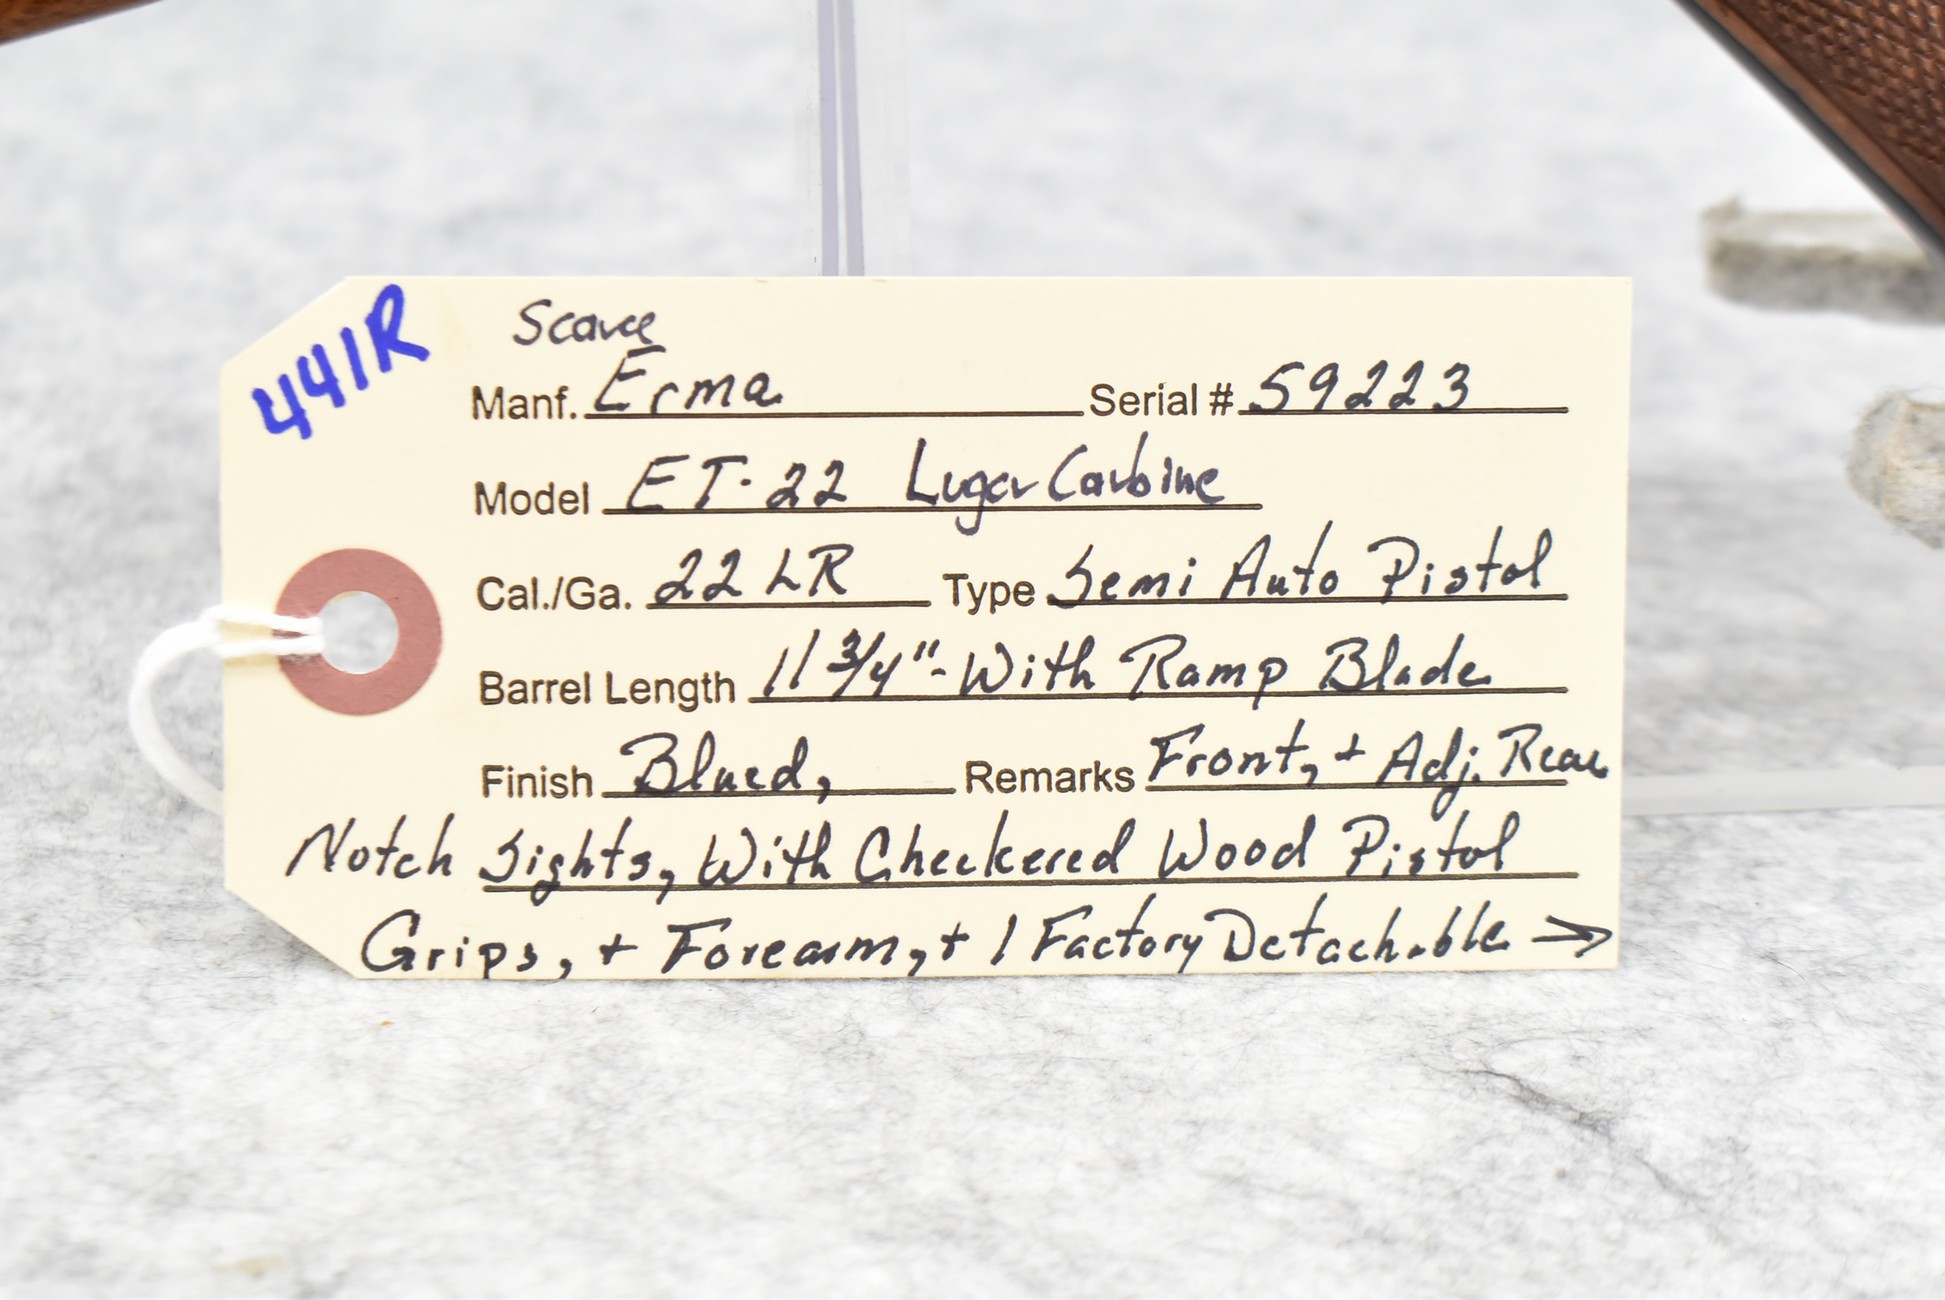 441R
Scarce
Manf. Erma Serial # 59223
Model ET-22 Luger Carbine
Cal./Ga. 22 LR Type Semi Auto Pistol
Barrel Length 11 3/4"- With Ramp Blade
Finish Blued, Remarks Front, + Adj. Rear
Notch Sights, With Checkered Wood Pistol
Grips, + Forearm, + 1 Factory Detachable →